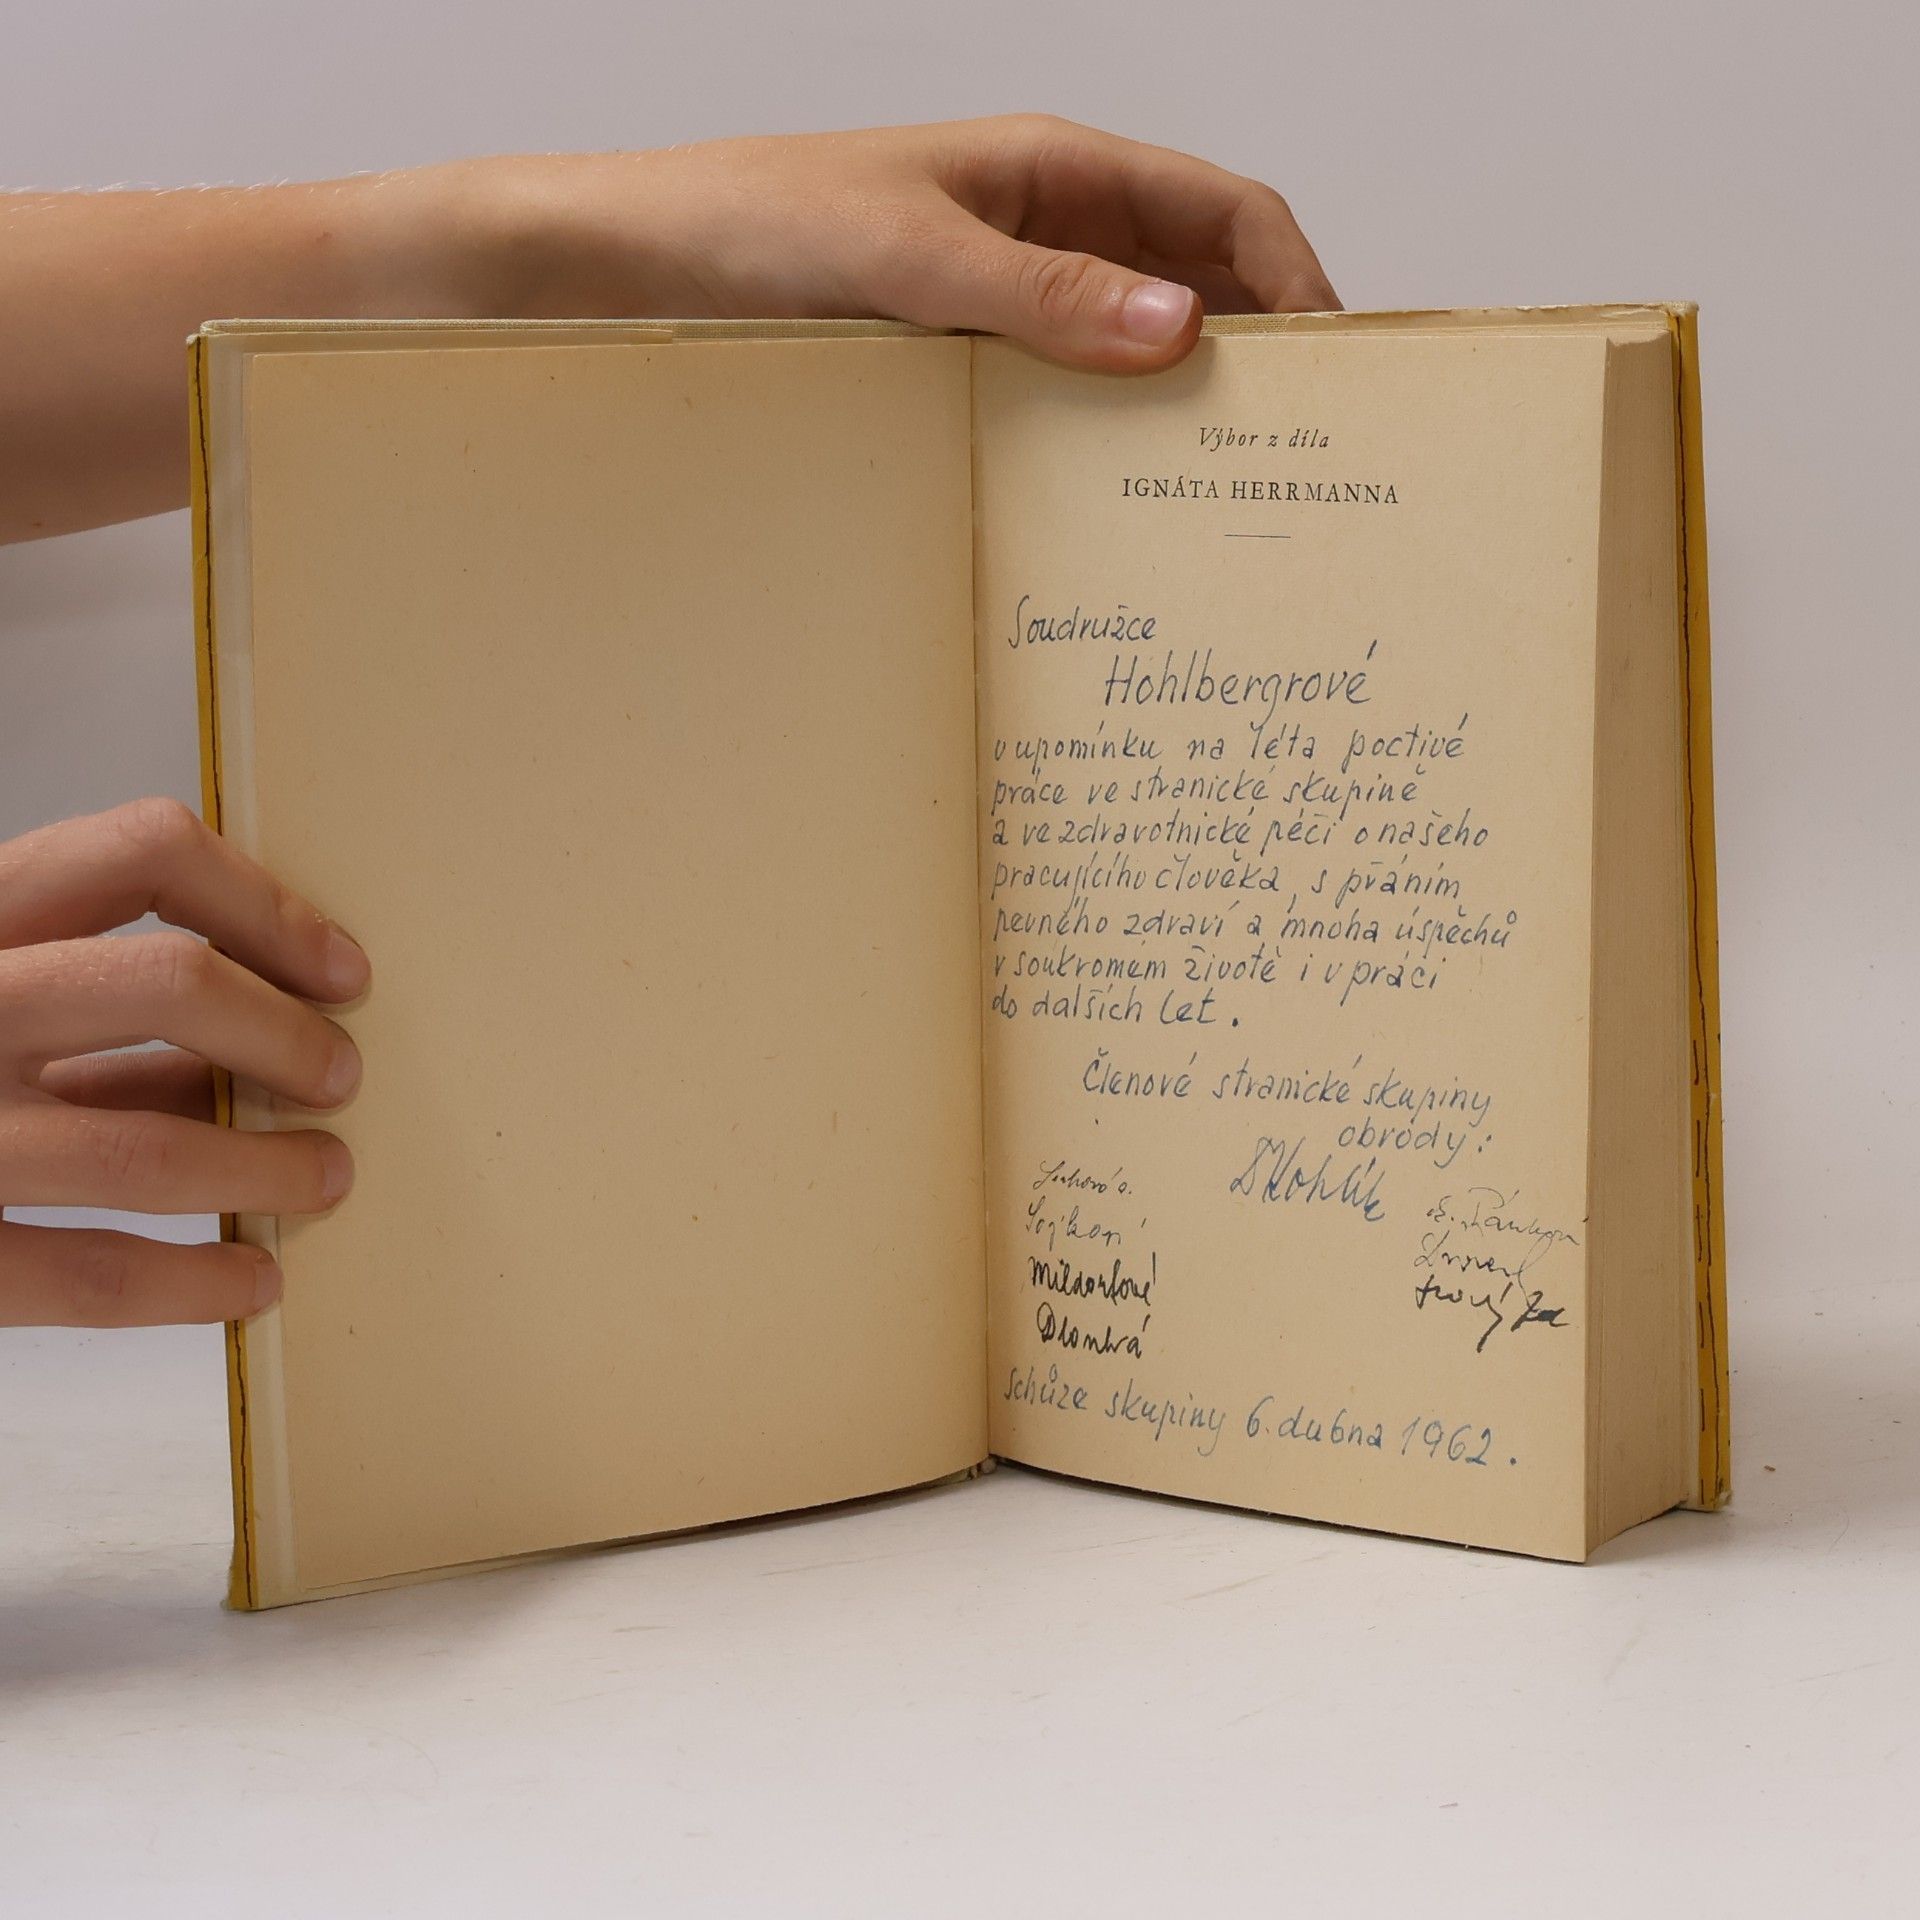 Výbor z díla
IGNÁTA HERRMANNA
Soudružce
Hohlbergrové
v upomínku na léta poctivé
práce ve stranické skupině
a ve zdravotnické péči o našeho
pracujícího člověka, s přáním
pevného zdraví a mnoha úspěchů
v soukromém životě i v práci
do dalších let.
Členové stranické skupiny
obrody:
Dlouhá
schůze skupiny 6. dubna 1962.